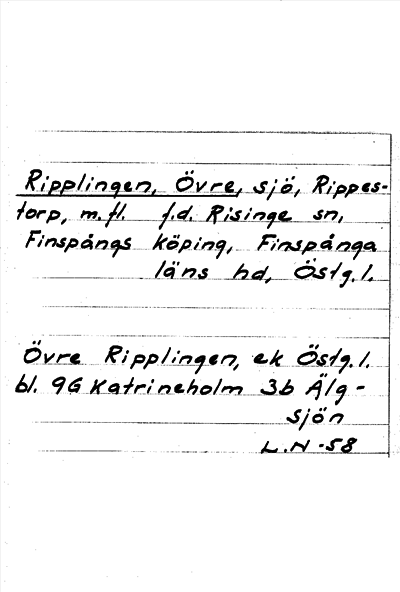 Ripplingen, Övre, sjö, Rippes-
torp, m.fl. f.d. Risinge sn,
Finspångs köping, Finspånga
läns hd, Östg.l.
Övre Ripplingen, ek Östg.l.
bl. 9G Katrineholm 3b Älg-
sjön
L.N -58